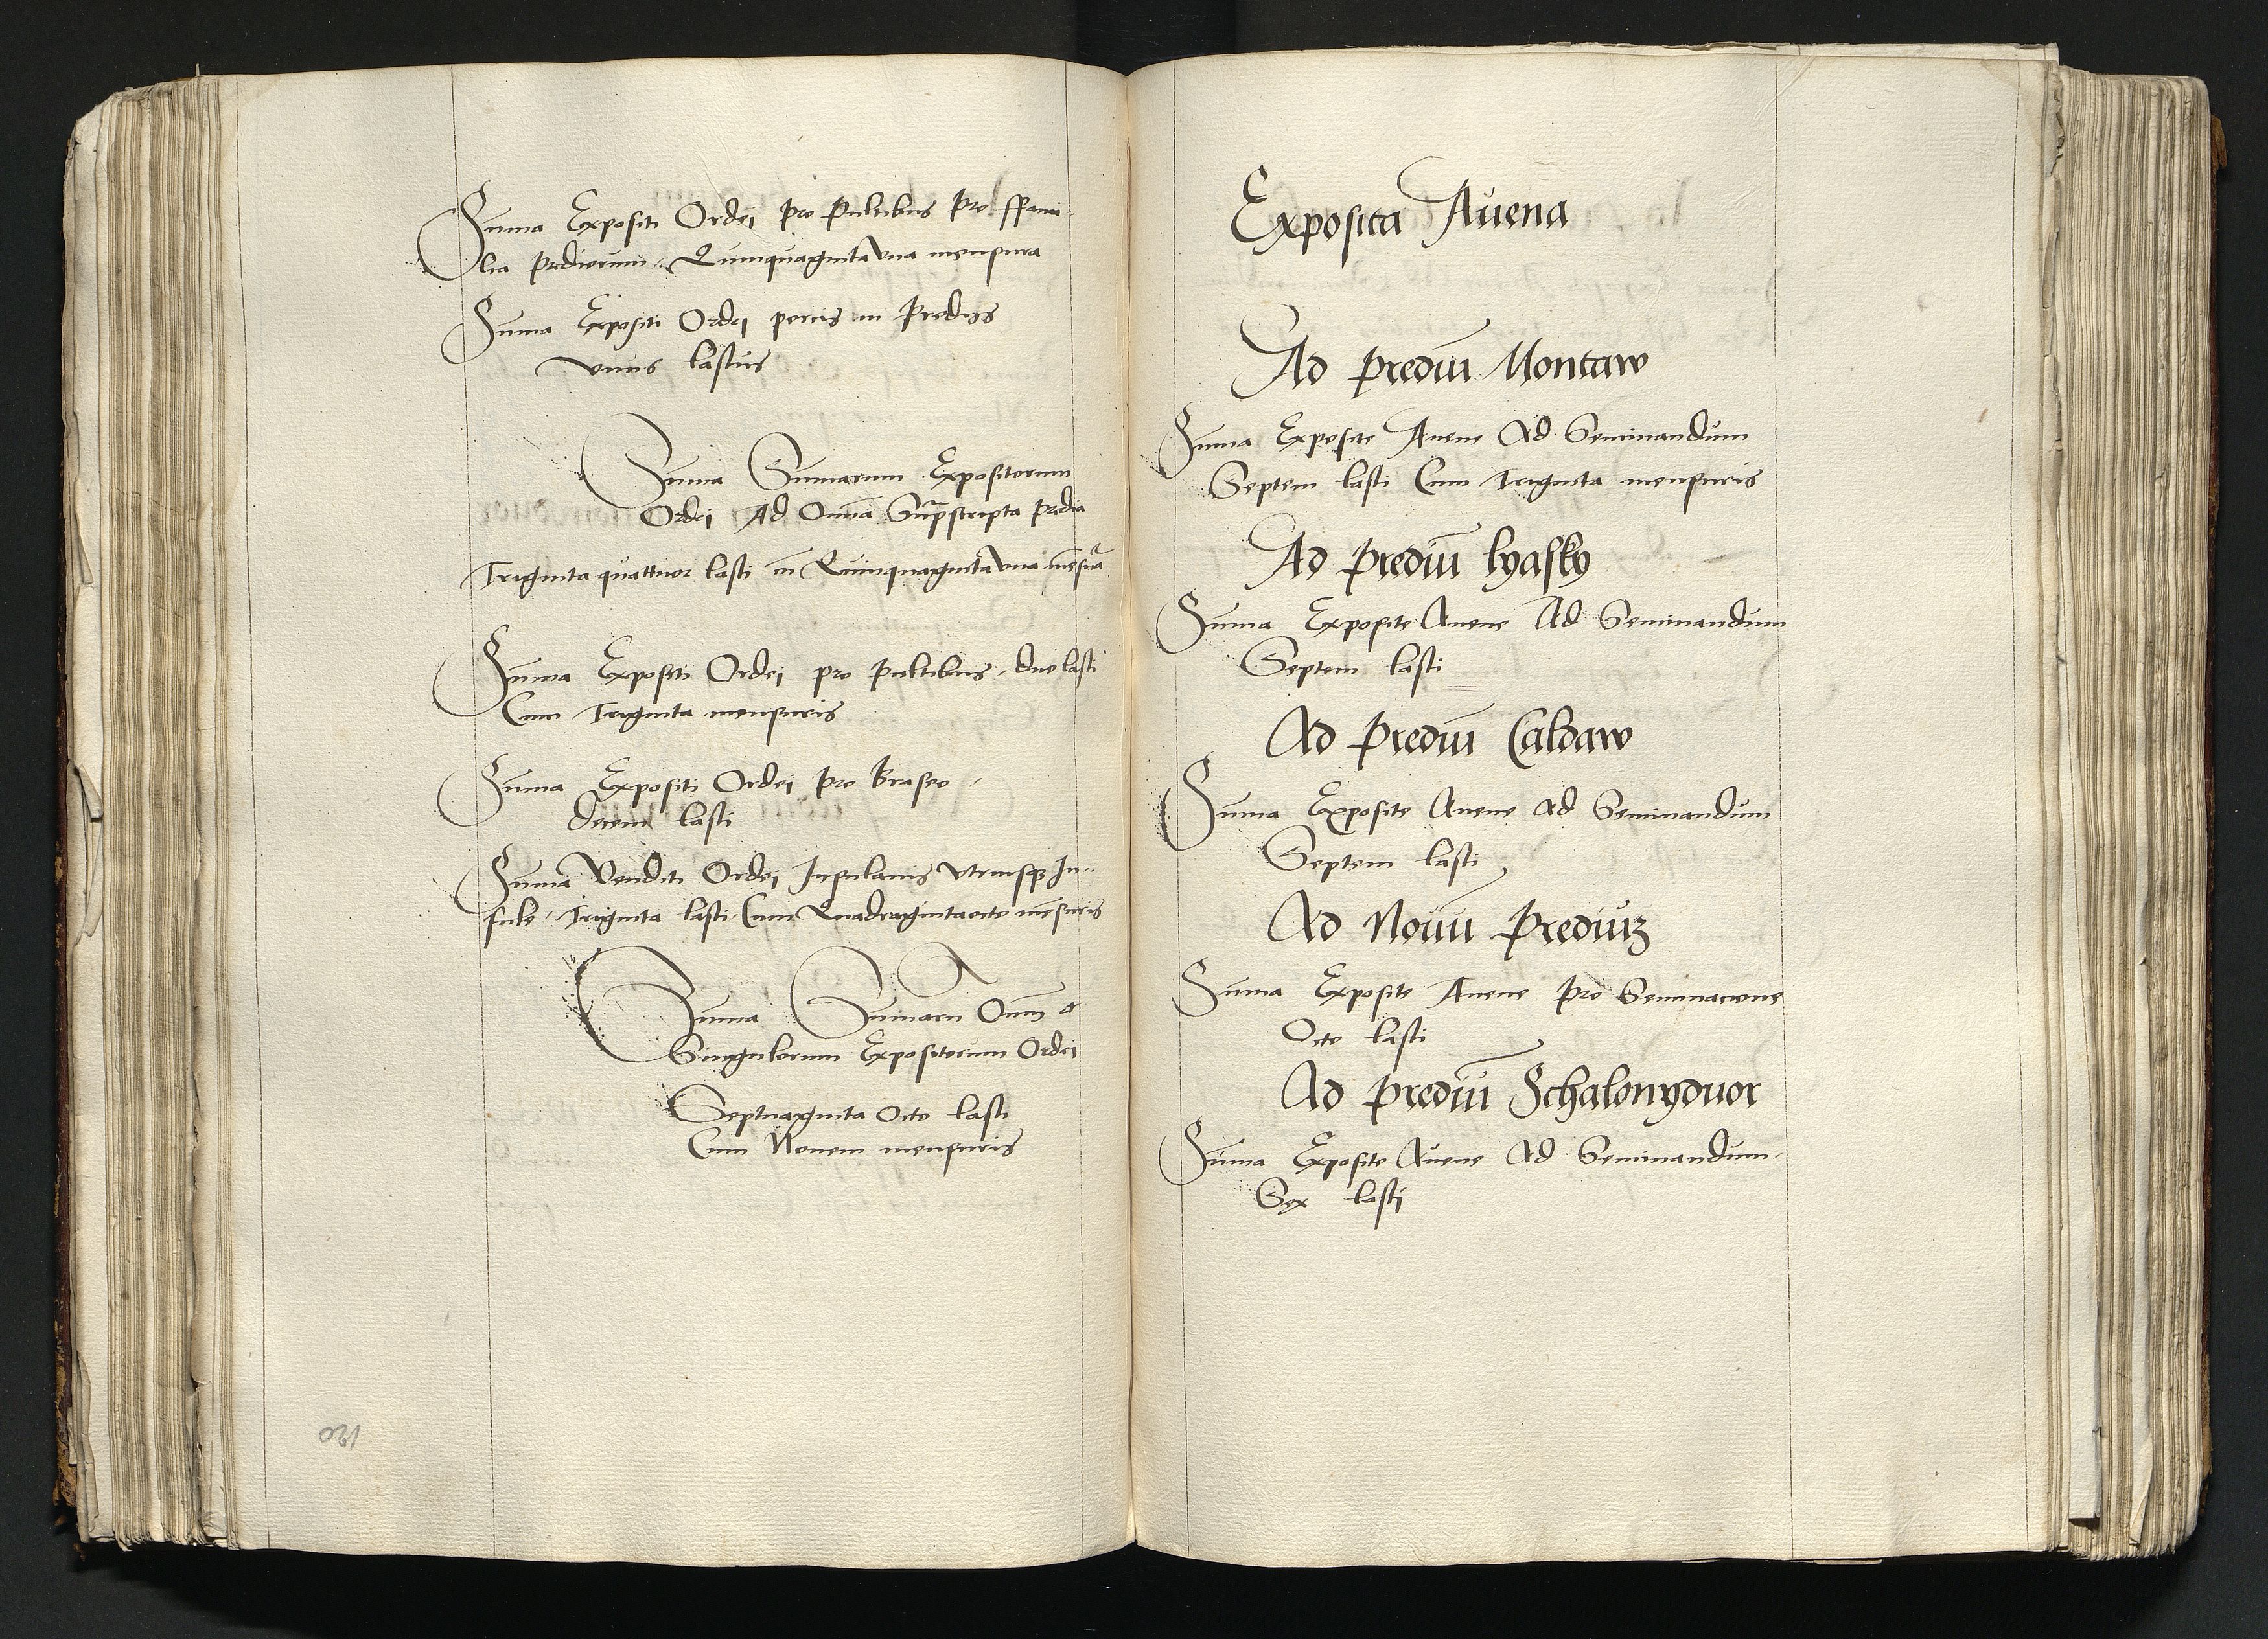 Suma Expositi Ordei pro Pultibus pro ffami-
lia prediorum Quinquaginta vna mensura
Suma Expositi Ordei porcis in Predijs
vnus lastus
Suma Sumarum Expositorum
Ordei Ad Omia Suprascripta predia
Triginta quattuor lasti Quinquaginta vna mesura
Suma Expositi Ordei pro Pultibus duo lasti
Cum Triginta mensuris
Suma Expositi Ordei pro Braseo
decem lasti
Suma Venditi Ordei Insulanis vtriusqz In-
sule Triginta lasti Cum Quadraginta octo mesuris
Suma Sumaru Oim et
Singulorum Expositorum Ordei
Septuaginta octo lasti
Cum Nonem mensuris
120
Exposita Auena
Ad prediu Montaw
Suma Exposite Auene Ad Seminandum
Septem lasti Cum Triginta mensuris
Ad prediu lyasky
Suma Exposite Auene Ad Seminandum
Septem lasti
Ad prediu Caldaw
Suma Exposite Auene ad Seminandum
Septem lasti
Ad Nouu prediuz
Suma Exposite Auene pro Seminacione
Octo lasti
Ad prediu Schalonyduor
Suma Exposite Auene Ad Seminandum
Sex lasti